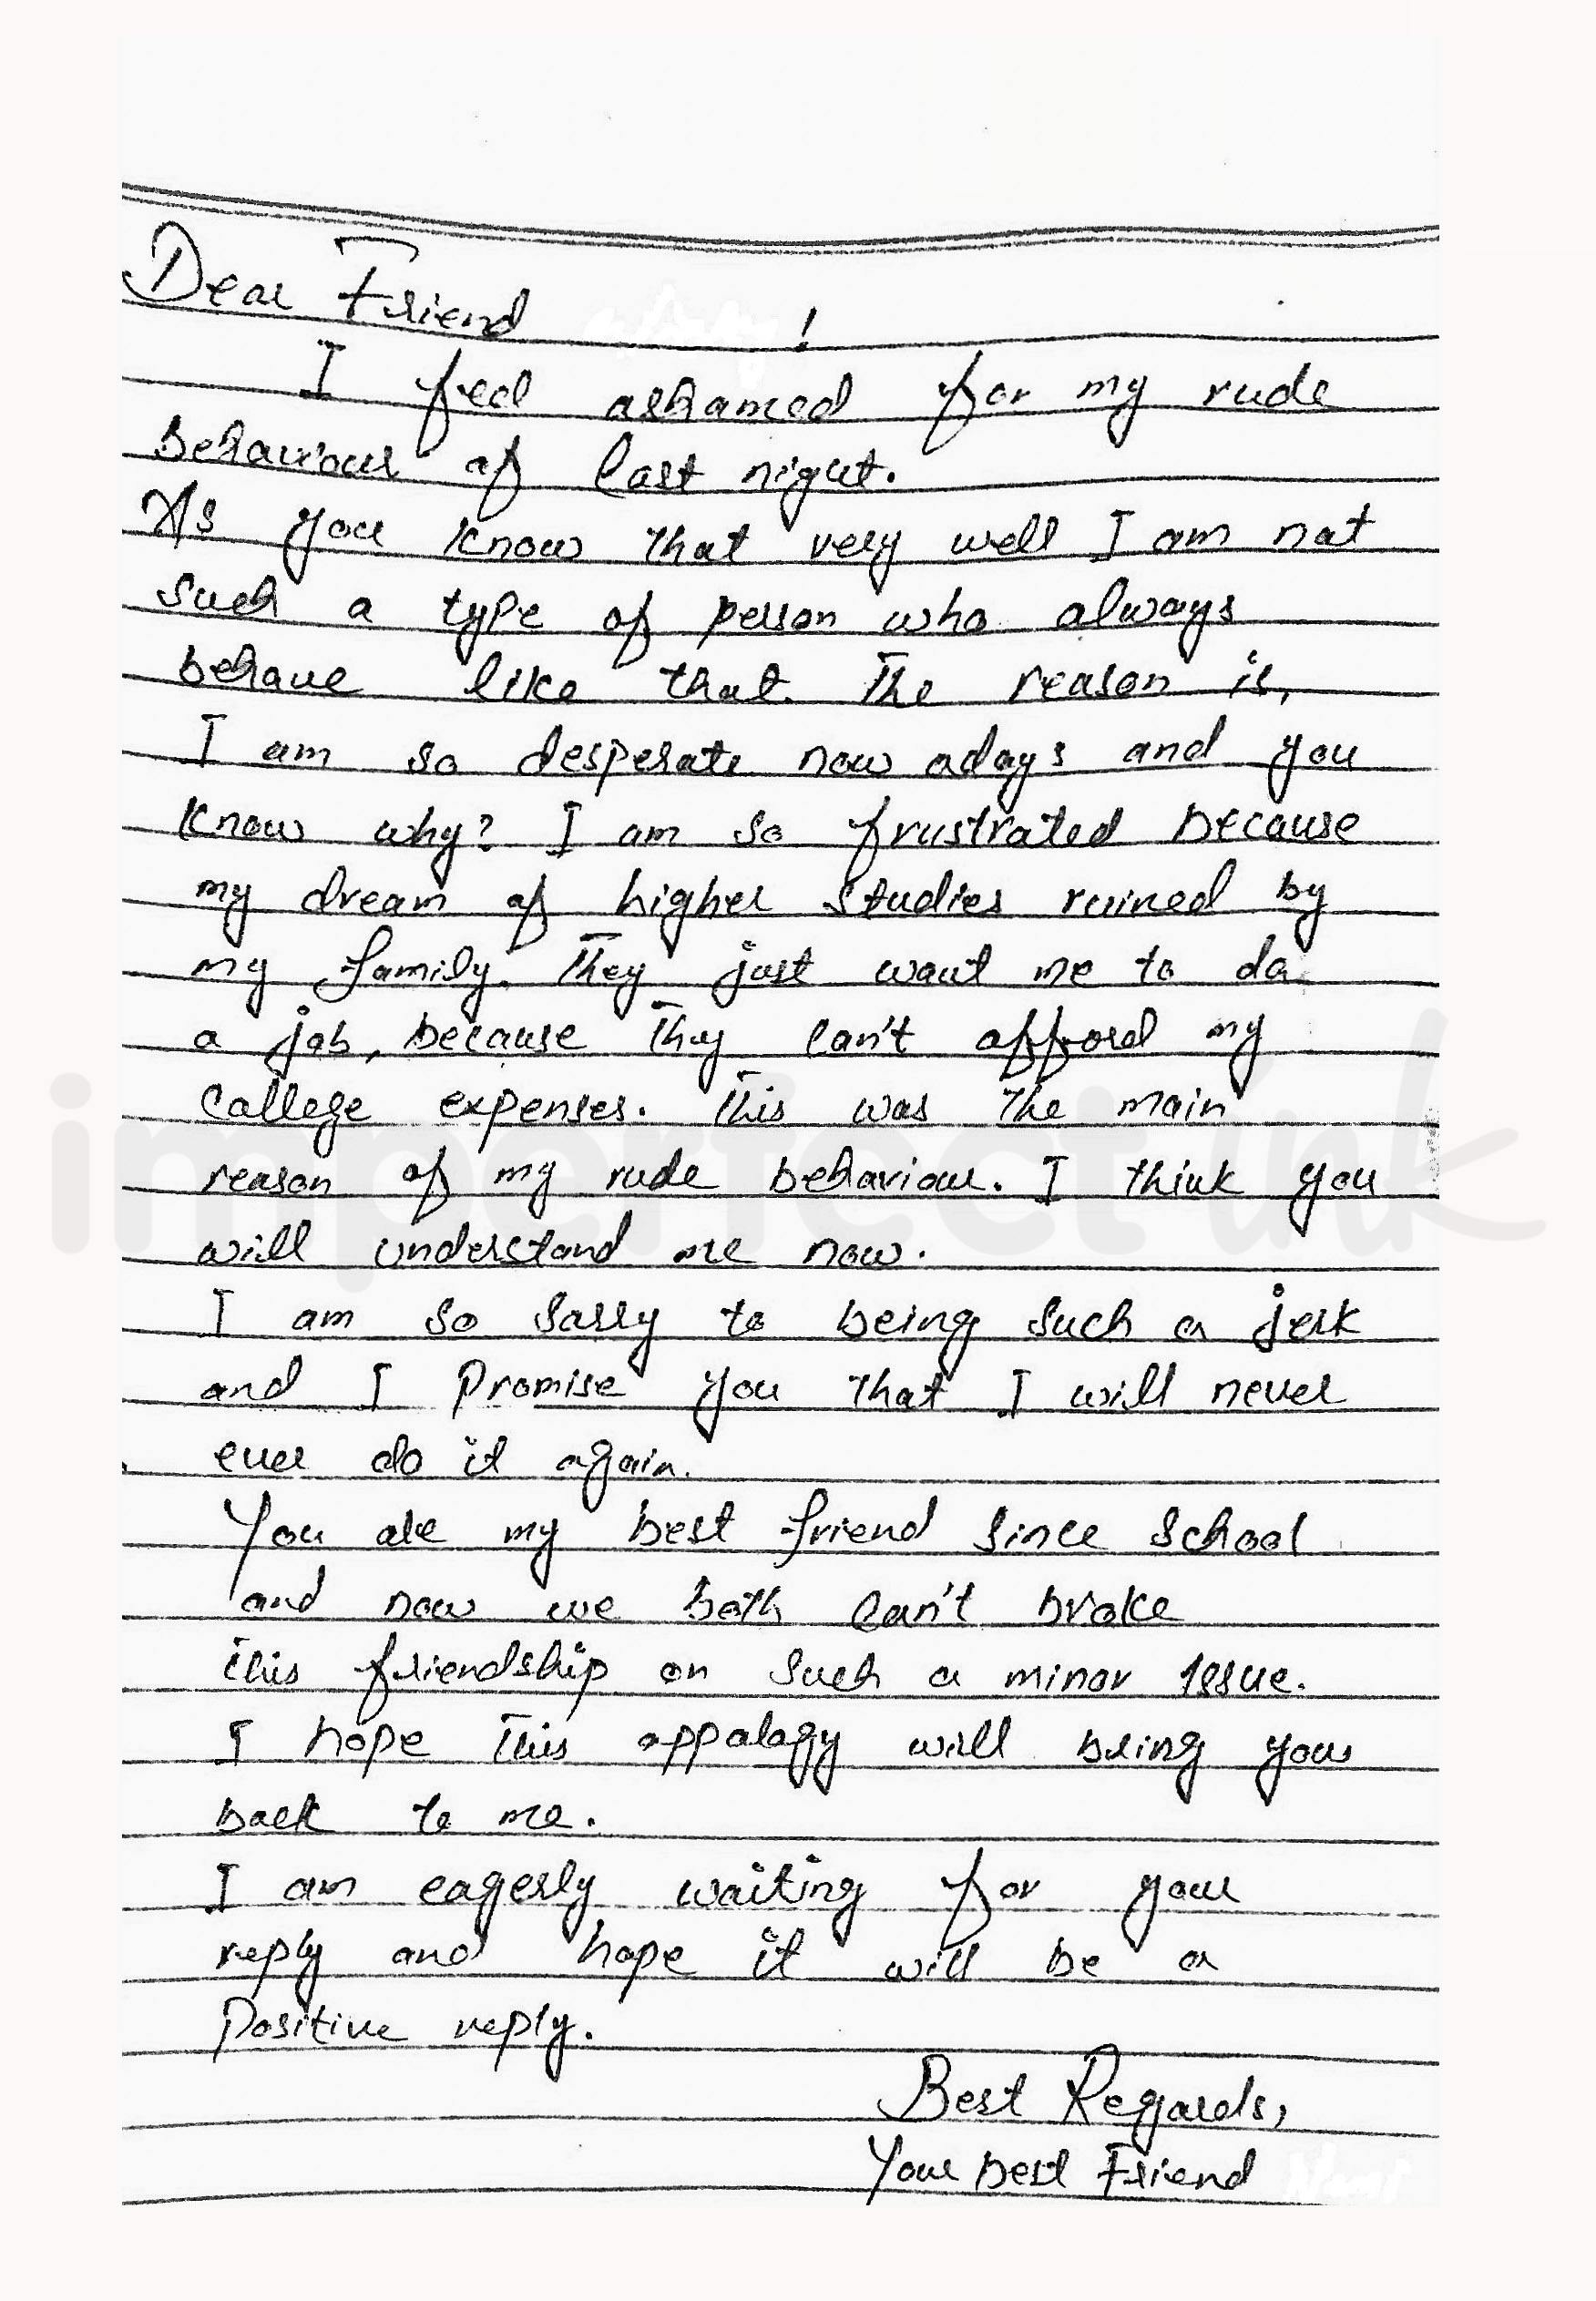 Dear Friend !
I feel ashamed for my rude
behaviour of last night.
As you know that very well I am not
such a type of person who always
behave like that. The reason is,
I am so desperate now adays and you
know why? I am so frustrated because
my dream of higher studies ruined by
my family. They just want me to do
a job, because they can't afford my
college expenses. This was the main
reason of my rude behaviour. I think you
will understand me now.
I am so sorry to being such a jerk
and I promise you that I will never
ever do it again.
You are my best friend since school
and now we both can't broke
this friendship on such a minor issue.
I hope this appology will bring you
back to me.
I am eagerly waiting for your
reply and hope it will be a
positive reply.
Best Regards,
Your best Friend
imperfect ink